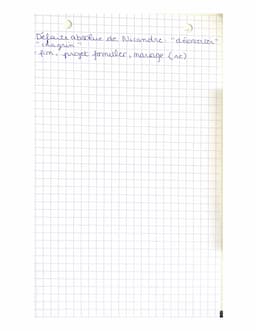 Défaite absolue de Nicandre "désespoir"
"chagrin"
fin, projet familier, mariage (re)